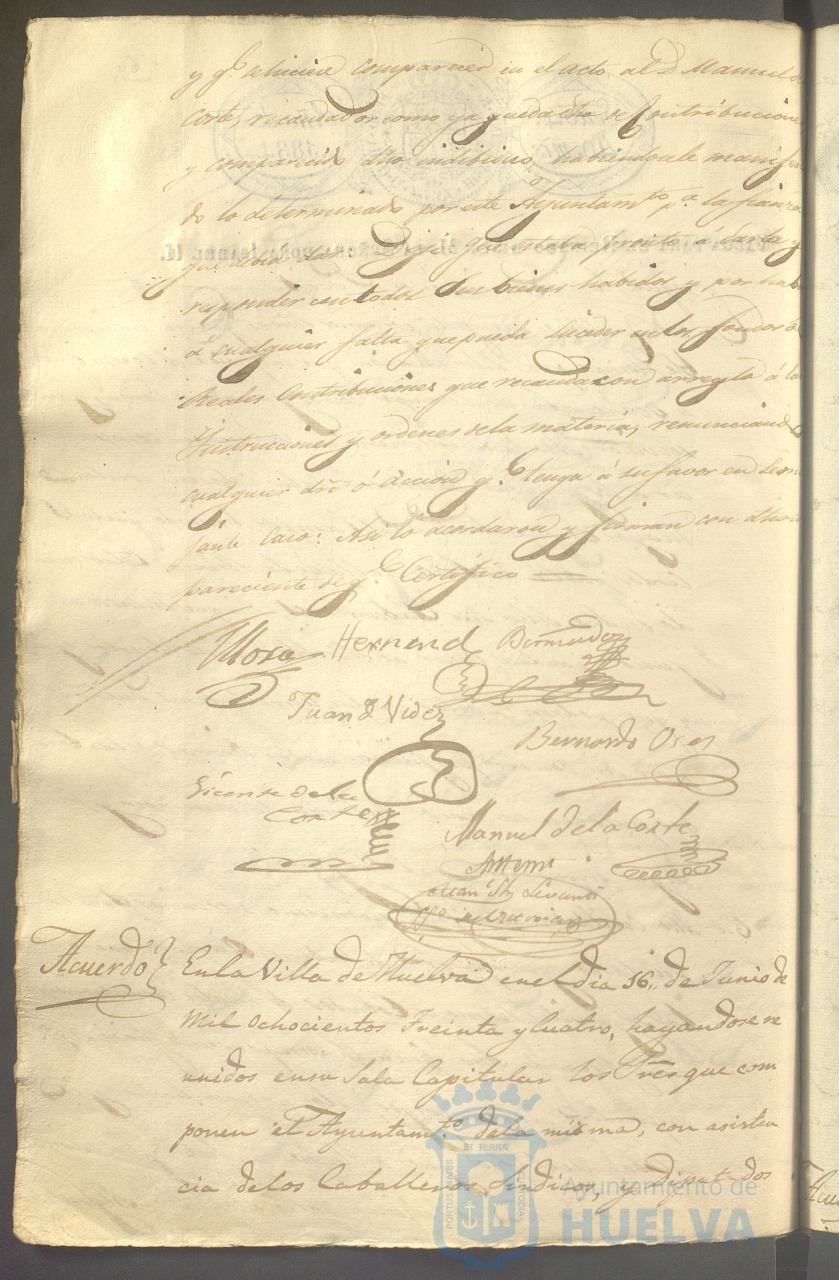 y qe. se hiciese comparecer en el acto al D. Manuel de
Corte, recaudador como ya queda dho de Contribuciones
y comparecido dho individuo, habiendosele manifes
do lo determinado por este Ayuntamto. pa. la fianza
que debia dar. Dijo: que estaba pronto á darla y
responder con todos sus bienes habidos y por hab
á cualquier falta que pueda suceder en los fondos de
Reales Contribuciones que recauda con arreglo á las
Ynstrucciones y ordenes de la materia, renunciando
cualquier dro ó accion qe. tenga á su favor en seme
jante caso: Asi lo acordaron y firman con dho
pareciente de qe. Certifico
Hernand Bermudez
Juan de Videz
Bernardo
Vicente de la
Corte
Manuel de la Corte
Acuerdo
En la Villa de Huelva en el dia 16,, de Junio de
Mil ochocientos treinta y Cuatro, hayandose re
unidos en su Sala Capitular los Sres que com
ponen el Ayuntamto. de la misma, con asisten
cia de los Caballeros Sindicos, y diputados
PORTUS MARIS
ET TERRAE
CUSTODIA
Ayuntamiento de
HUELVA